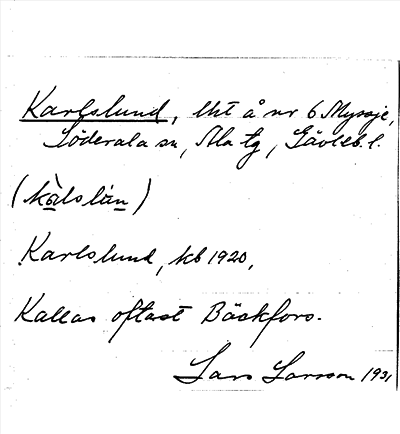 Karlslund, lht å nr 6 Myssje,
Söderala sn, Ala tg, Gävleb. l.
(kàlslún)
Karlslund, kb 1920,
Kallas oftast Bäckfors.
Lars Larsson 1931